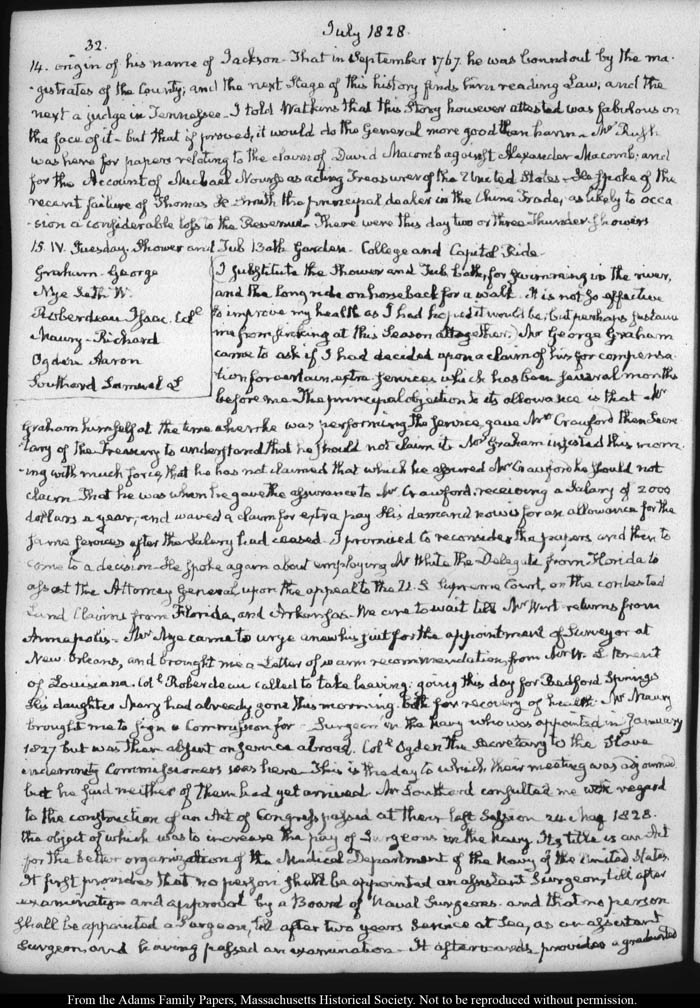 July 1828.
32.
14. origin of his name of Jackson. That in September 1767. he was bound out by the ma-
-gistrates of the County; and the next stage of this history finds him reading Law, and the
next a judge in Tennessee. I told Watkins that this story however attested was fabulous on
the face of it - but that if proved, it would do the General more good than harm. Mr Rush
was here for papers relating to the claim of David Macomb against Alexander Macomb; and
for the Account of Michael Nourse as acting Treasurer of the United States. He spoke of the
recent failure of Thomas H. Smith the principal dealer in the China Trade, as likely to occa
-sion a considerable loss to the Revenue. There were this day two or three Thunder showers
15. IV. Tuesday. Shower and Tub Bath. Garden. College and Capitol Ride.
Graham. George
Nye Seth W.
Roberdeau Isaac. Colo
Maury. Richard
Ogden Aaron
Southard Samuel L
I substitute the Shower and Tub bath, for swimming in the river,
and the long ride on horseback for a walk. It is not so effective
to improve my health as I had hoped it would be, but perhaps sustains
me from sinking at this Season altogether. Mr George Graham
came to ask if I had decided upon a claim of his for compensa
tion for certain extra services which has been several months
before me. The principal objection to its allowance is that Mr
Graham himself at the time when he was performing the service, gave Mr Crawford then Secre
tary of the Treasury to understand that he should not claim it. Mr Graham insisted this morn
-ing with much force, that he has not claimed that which he assured Mr Crawford he should not
claim. That he was when he gave the assurance to Mr Crawford, receiving a Salary of 2000
dollars a year, and waved a claim for extra pay. His demand now is for an allowance for the
same services after the Salary had ceased. I promised to reconsider the papers and then to
come to a decision. He spoke again about employing Mr White the Delegate from Florida to
assist the Attorney General, upon the appeal to the U.S. Supreme Court, on the contested
Land Claims from Florida, and Arkansas. We are to wait till Mr Wirt returns from
Annapolis. Mr Nye came to urge anew his suit for the appointment of Surveyor at
New Orleans, and brought me a Letter of warm recommendation from Mr W. L. Brent
of Louisiana. Colo Roberdeau called to take leave; going this day for Bedford Springs
His daughter Mary had already gone this morning. for recovery of health. Mr Maury
brought me to sign a Commission for a Surgeon in the Navy who was appointed in January
1827 but was then absent on service abroad. Colo Ogden the Secretary to the Slave
indemnity Commissioners was here. This is the day to which their meeting was adjourned
but he find neither of them had yet arrived. Mr Southard consulted me with regard
to the construction of an Act of Congress passed at their last Session 24 May 1828.
the object of which was to increase the pay of Surgeons in the Navy. Its title is an Act
for the better organization of the Medical Department of the Navy of the United States.
It first provides that no person shall be appointed an assistant Surgeon, till after
examination and approval by a Board of Naval Surgeons. and that no person
shall be appointed a Surgeon, till after two years Service at Sea, as an assistant
Surgeon and having passed an examination. It afterwards provides a graduated
From the Adams Family Papers, Massachusetts Historical Society. Not to be reproduced without permission.